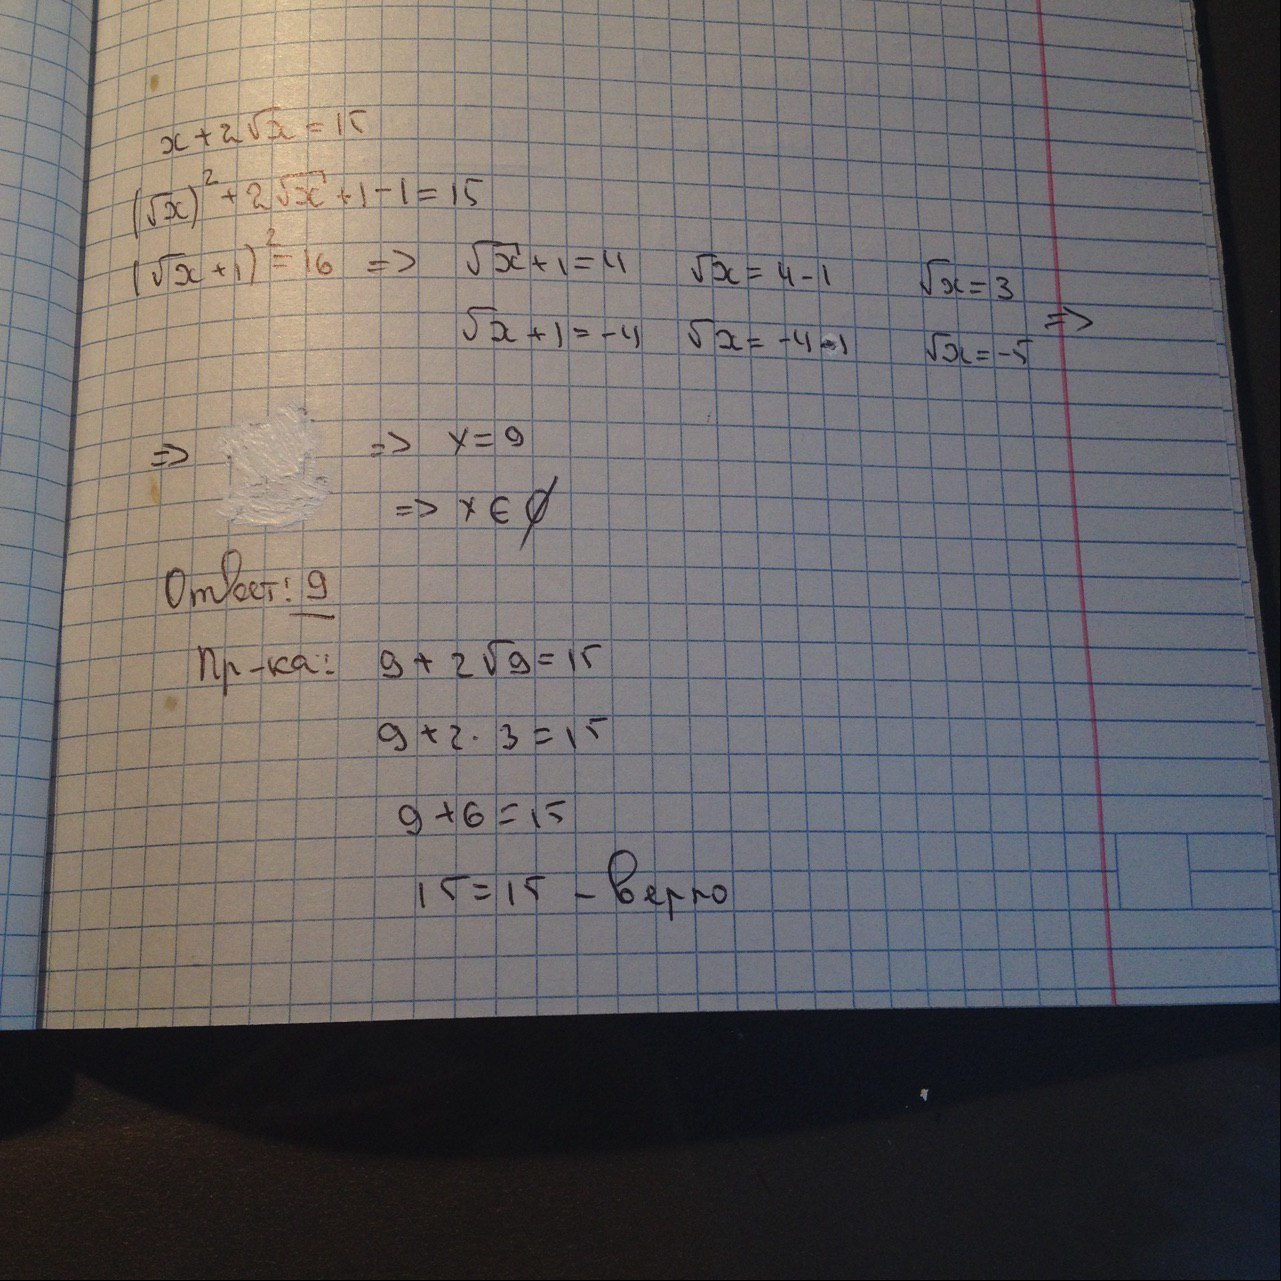 x + 2√x = 15
(√x)² + 2√x + 1 - 1 = 15
(√x + 1)² = 16 => √x + 1 = 4 √x = 4 - 1 √x = 3
√x + 1 = -4 √x = -4 - 1 √x = -5 =>
=> => x = 9
=> x ∈ ∅
Ответ: 9
Пр-ка: 9 + 2√9 = 15
9 + 2 · 3 = 15
9 + 6 = 15
15 = 15 - верно